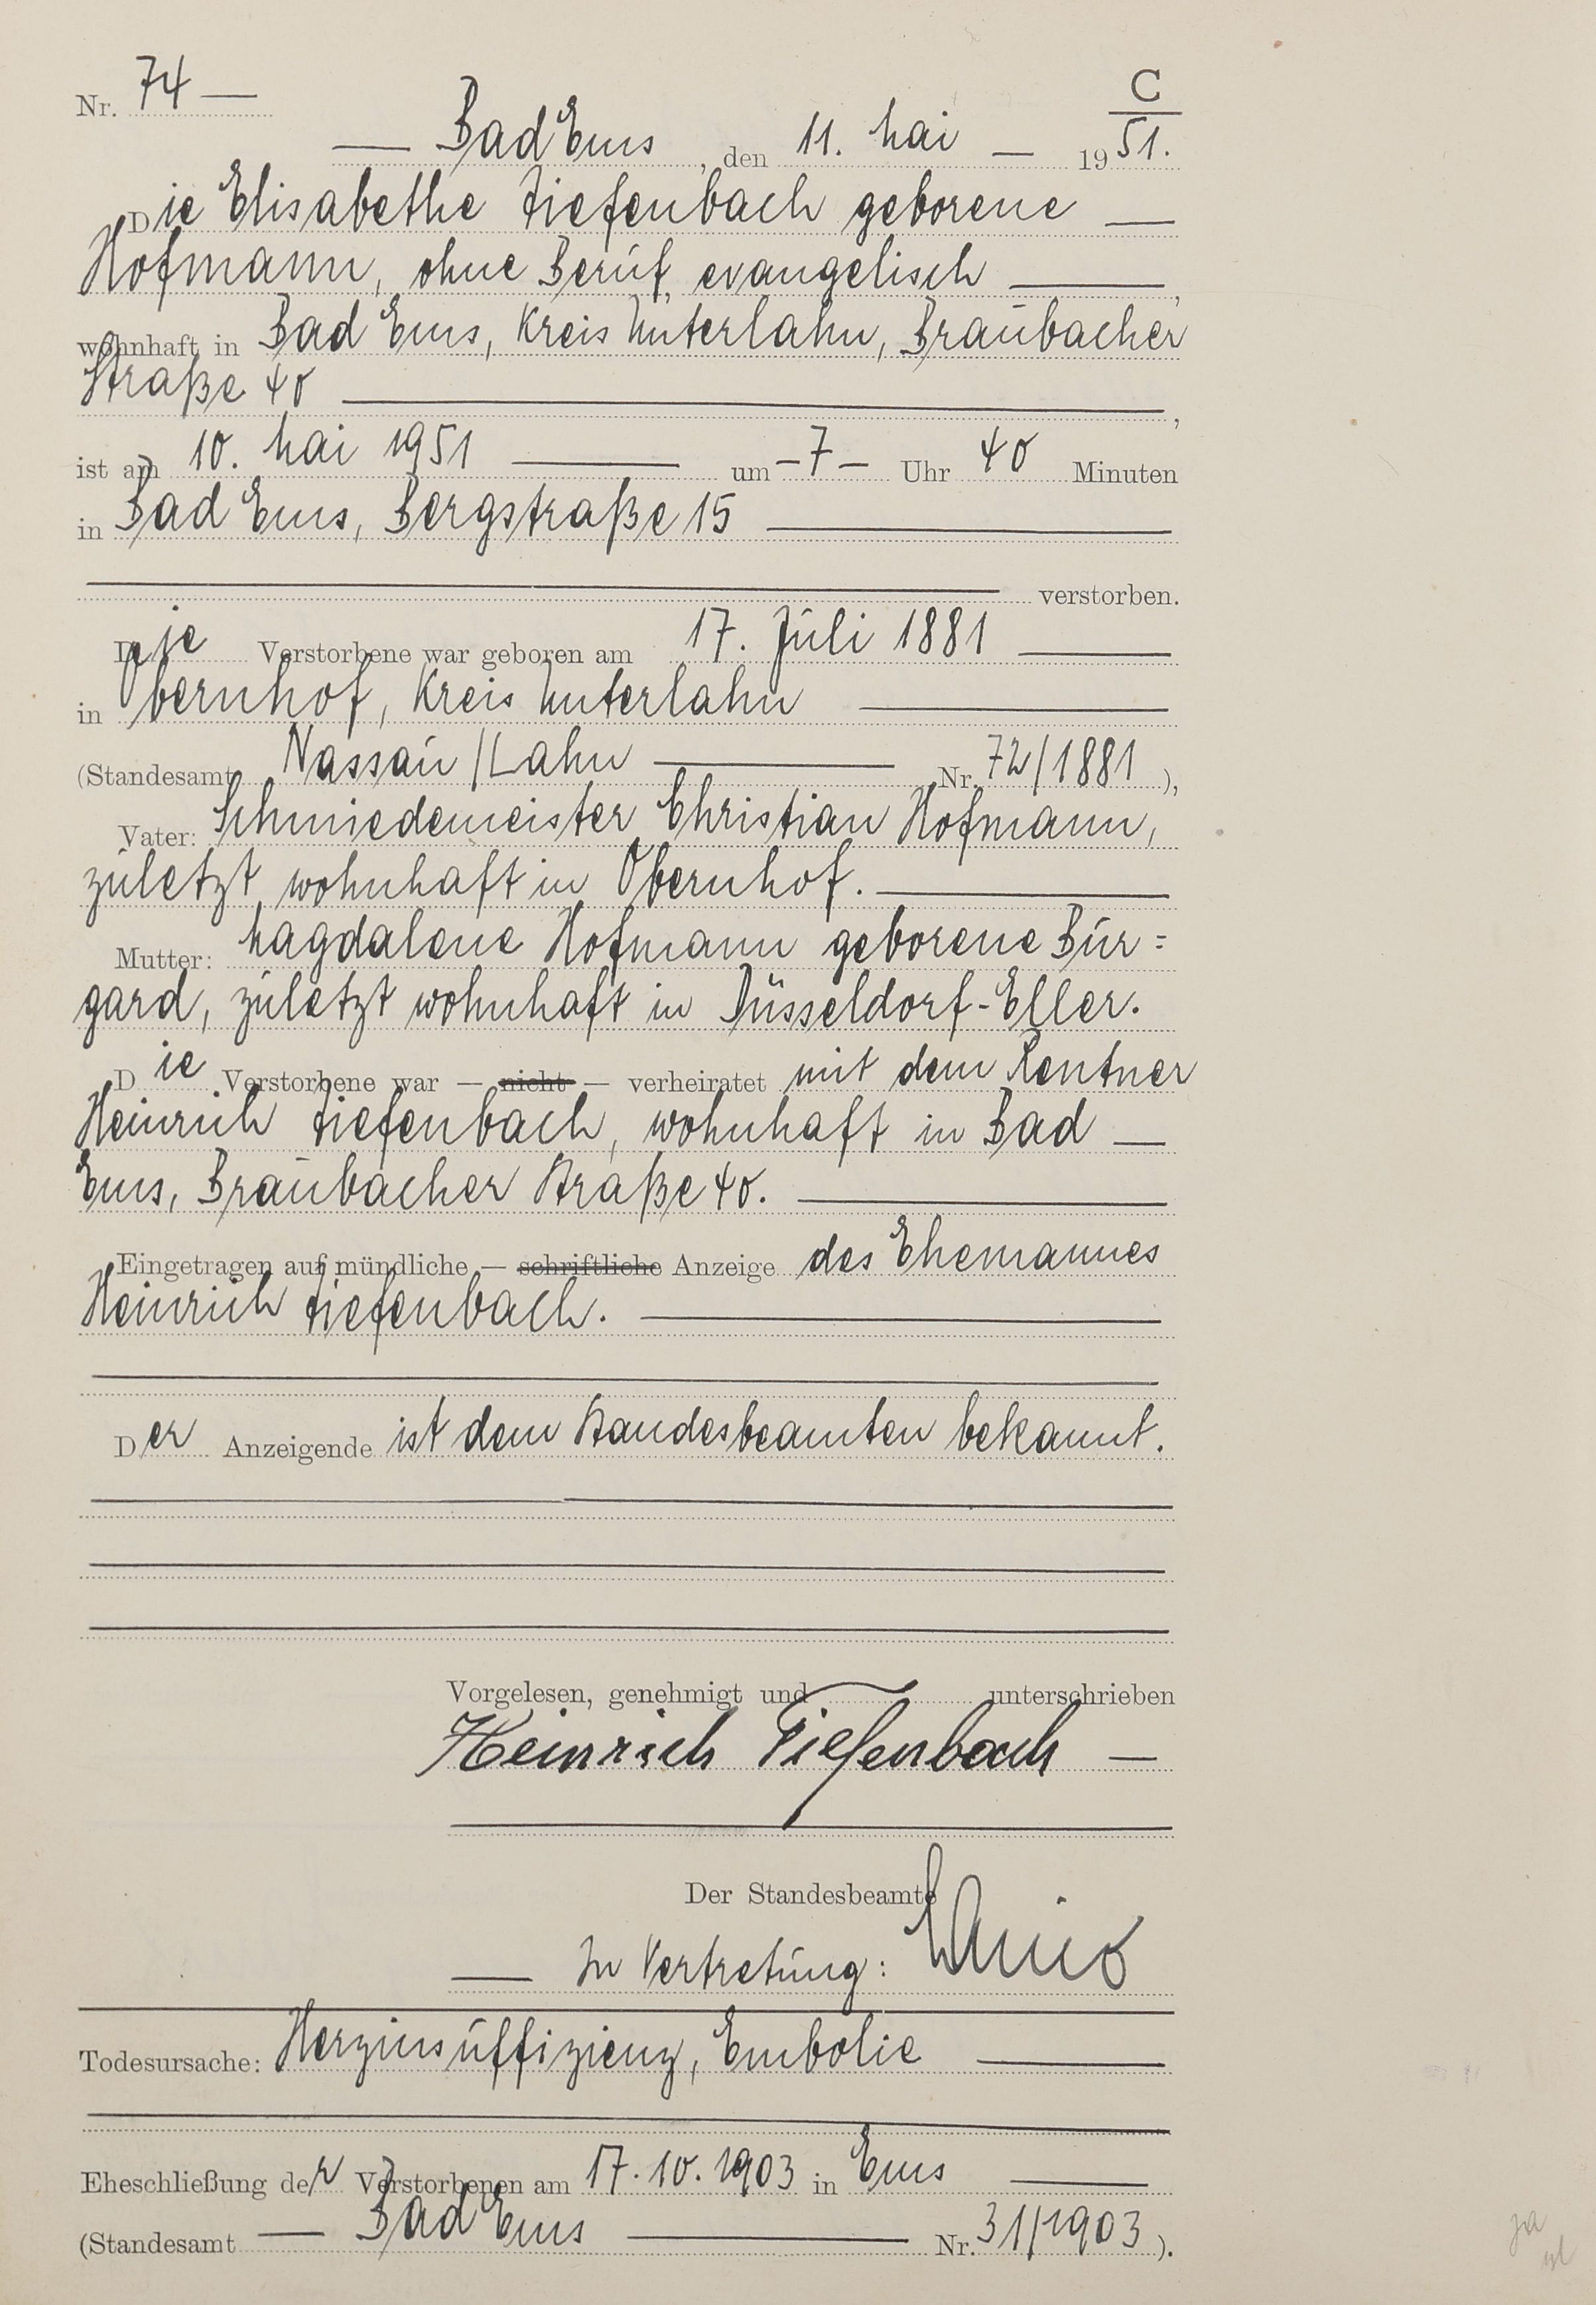 C
Nr. 74 —
— Bad Ems, den 11. Mai — 1951.
Die Elisabethe Tiefenbach geborene —
Hofmann, ohne Beruf, evangelisch —,
wohnhaft in Bad Ems, Kreis Unterlahn, Braubacher
Straße 40 —,
ist am 10. Mai 1951 — um — 7 — Uhr 40 Minuten
in Bad Ems, Bergstraße 15 —
— verstorben.
Die Verstorbene war geboren am 17. Juli 1881 —
in Obernhof, Kreis Unterlahn —
(Standesamt Nassau/Lahn — Nr. 72/1881),
Vater: Schmiedemeister Christian Hofmann,
zuletzt wohnhaft in Obernhof. —
Mutter: Magdalene Hofmann geborene Bur=
gard, zuletzt wohnhaft in Düsseldorf-Eller.
Die Verstorbene war — nicht — verheiratet mit dem Rentner
Heinrich Tiefenbach, wohnhaft in Bad —
Ems, Braubacher Straße 40. —
Eingetragen auf mündliche — schriftliche Anzeige des Ehemannes
Heinrich Tiefenbach. —
Der Anzeigende ist dem Standesbeamten bekannt.
Vorgelesen, genehmigt und — unterschrieben
Heinrich Tiefenbach —
Der Standesbeamte
— In Vertretung:
Todesursache: Herzinsuffizienz, Embolie —
Eheschließung der Verstorbenen am 17.10.1903 in Ems —
(Standesamt — Bad Ems — Nr. 31/1903).